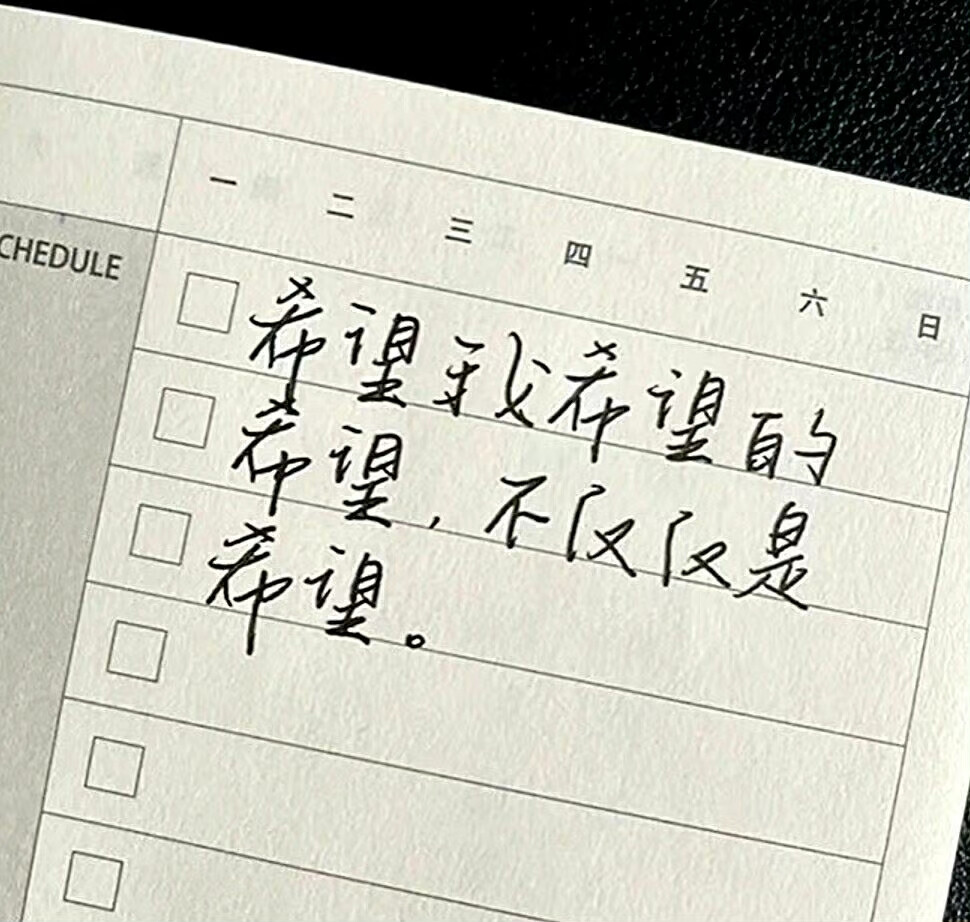 一 二 三 四 五 六 日
CHEDULE
希望我希望的
希望，不仅仅是
希望。